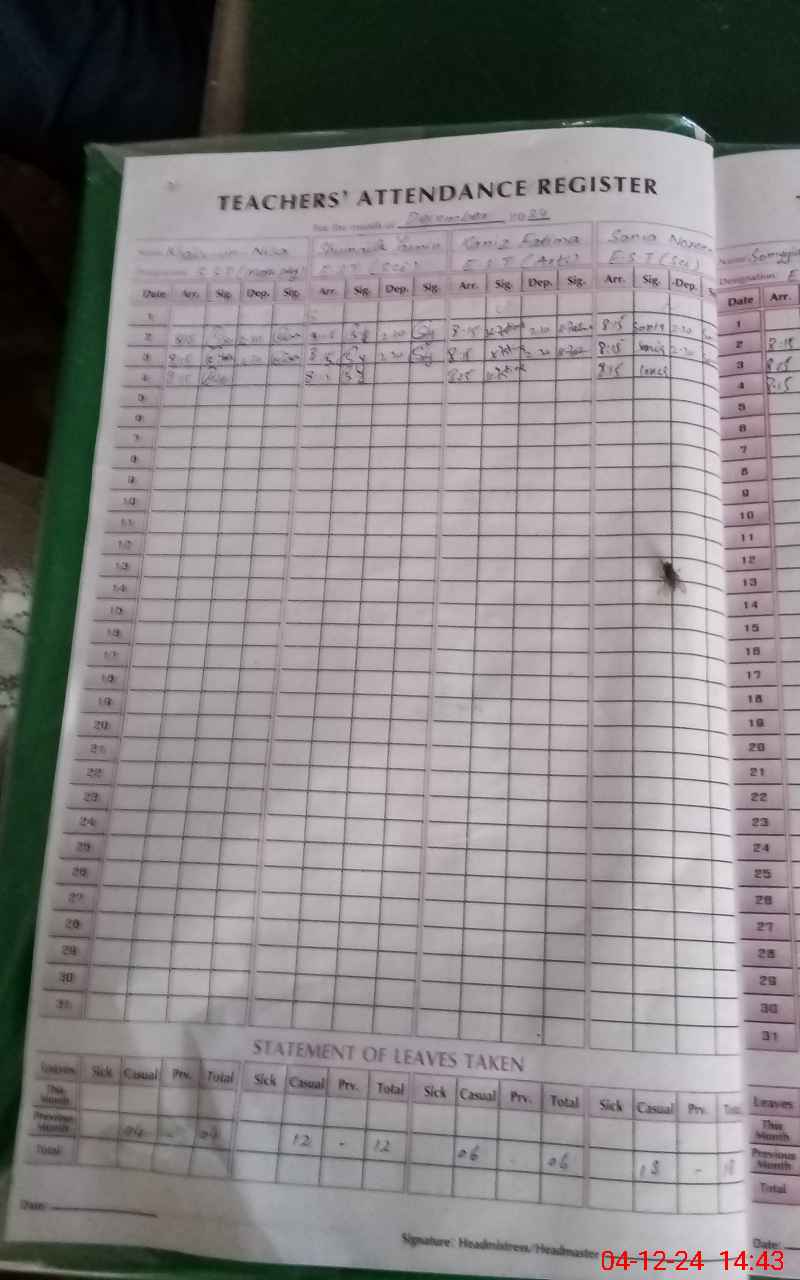 TEACHERS' ATTENDANCE REGISTER
For the month of December 2024
Name Nisa Kaniz Fatima Sania Name:
Designation S S T E S T (Sci) E S T (Arts) E S T (Sci) Designation: E
Date Arr. Sig. Dep. Sig. Arr. Sig. Dep. Sig. Arr. Sig. Dep. Sig. Arr. Sig. Dep. Date Arr.
1 1
2 8:15 2:20 8:15 Sy 2:20 Sy 8:15 2:20 8:15 Sonia 2:20 2 8:15
3 8:15 2:20 8:15 Sy 2:20 Sy 8:15 2:20 8:15 Sonia 2:20 3 8:15
4 8:15 8:15 Sy 8:15 8:15 Sonia 4 8:15
5 5
6 6
7 7
8 8
9 9
10 10
11 11
12 12
13 13
14 14
15 15
16 16
17 17
18 18
19 19
20 20
21 21
22 22
23 23
24 24
25 25
26 26
27 27
28 28
29 29
30 30
31 31
STATEMENT OF LEAVES TAKEN
Leaves Sick Casual Prv. Total Sick Casual Prv. Total Sick Casual Prv. Total Sick Casual Prv. Leaves
This Month This Month
Previous Month 04 - 04 12 - 12 06 - 06 18 - 18 Previous Month
Total Total
Date: Date:
Signature: Headmistress/Headmaster
04-12-24 14:43